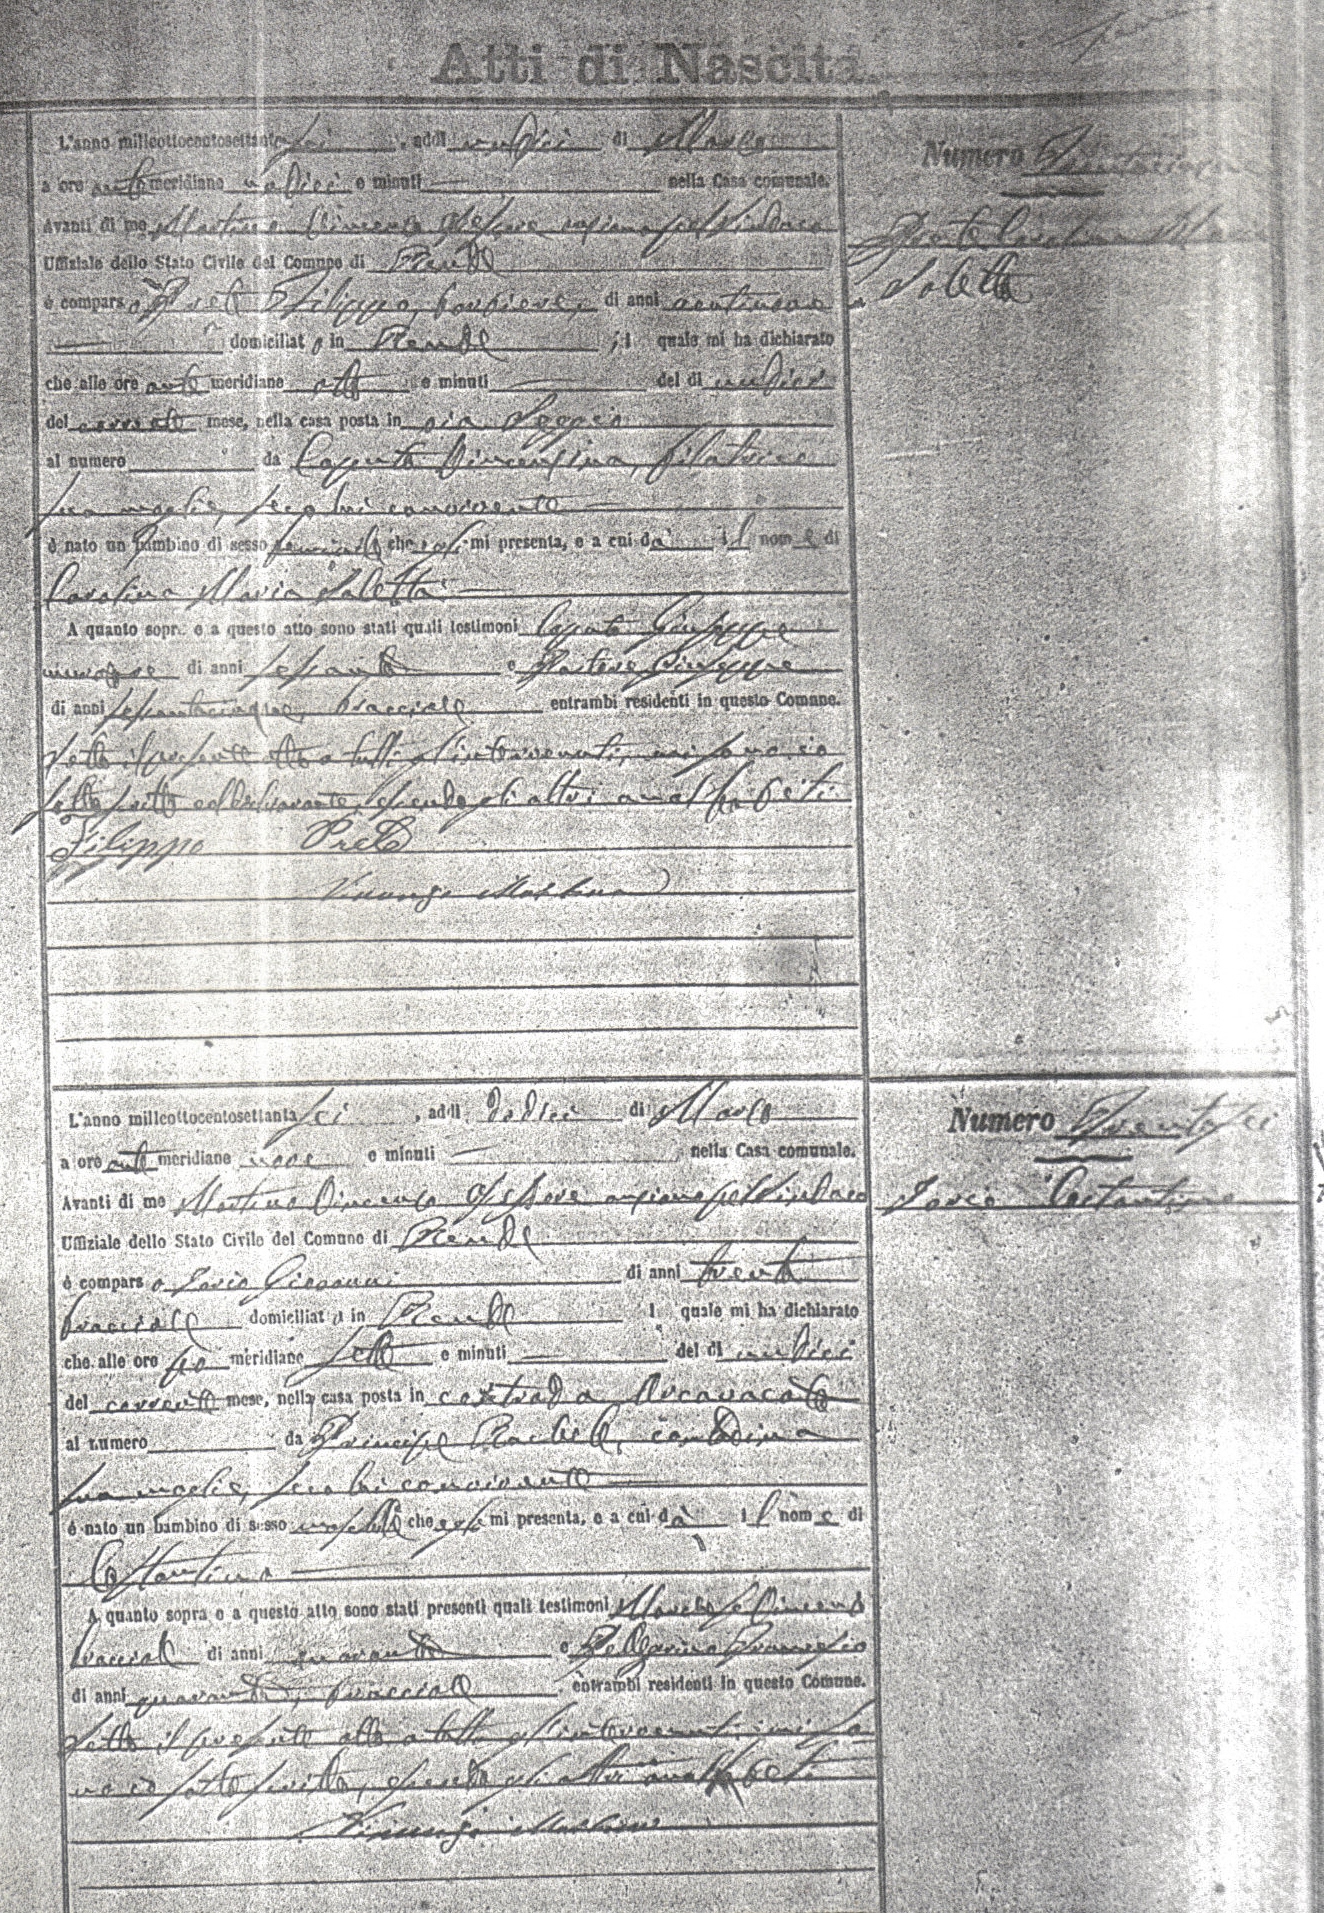 Atti di Nascita.
L'anno milleottocentosettantasei, addì undici di Marzo
a ore ante meridiane undici e minuti nella Casa comunale.
Avanti di me Martino Vincenzo Assessore anziano pel Sindaco
Uffiziale dello Stato Civile del Comune di Rende
è comparso Preta Filippo, di anni ventinove
domiciliato in Rende, il quale mi ha dichiarato
che alle ore ante meridiane otto e minuti del dì undici
del corrente mese, nella casa posta in via Seggio
al numero da Caputo Vincenzina, filatrice
sua moglie, seco lui convivente
è nato un bambino di sesso feminile che egli mi presenta, e a cui dà il nome di
Carolina Maria Saletta
A quanto sopra e a questo atto sono stati quali testimoni Caputo Giuseppe
di anni sessanta e Giuseppe
di anni sessantacinque, bracciale entrambi residenti in questo Comune.
Letto il presente atto a tutti gl'intervenuti,
sottoscritto col dichiarante, essendo gli altri analfabeti
Filippo Preta
Vincenzo Martino
Numero
Preta Carolina Maria
Saletta
L'anno milleottocentosettantasei, addì dodici di Marzo
a ore ante meridiane nove e minuti nella Casa comunale.
Avanti di me Martino Vincenzo Assessore anziano pel Sindaco
Uffiziale dello Stato Civile del Comune di Rende
è comparso Iorio Giovanni di anni trenta
bracciale domiciliato in Rende il quale mi ha dichiarato
che alle ore po meridiane sette e minuti del dì undici
del corrente mese, nella casa posta in contrada Arcavacata
al numero da Principe Rachele, contadina
sua moglie, seco lui convivente
è nato un bambino di sesso maschile che egli mi presenta, e a cui dà il nome di
Costantino
A quanto sopra e a questo atto sono stati presenti quali testimoni Marchese Vincenzo
bracciale di anni quaranta e Pellegrino Francesco
di anni quaranta, bracciale entrambi residenti in questo Comune.
Letto il presente atto a tutti gl'intervenuti, mi so
no io sottoscritto, essendo gli altri analfabeti
Vincenzo Martino
Numero Trentasei
Iorio Costantino